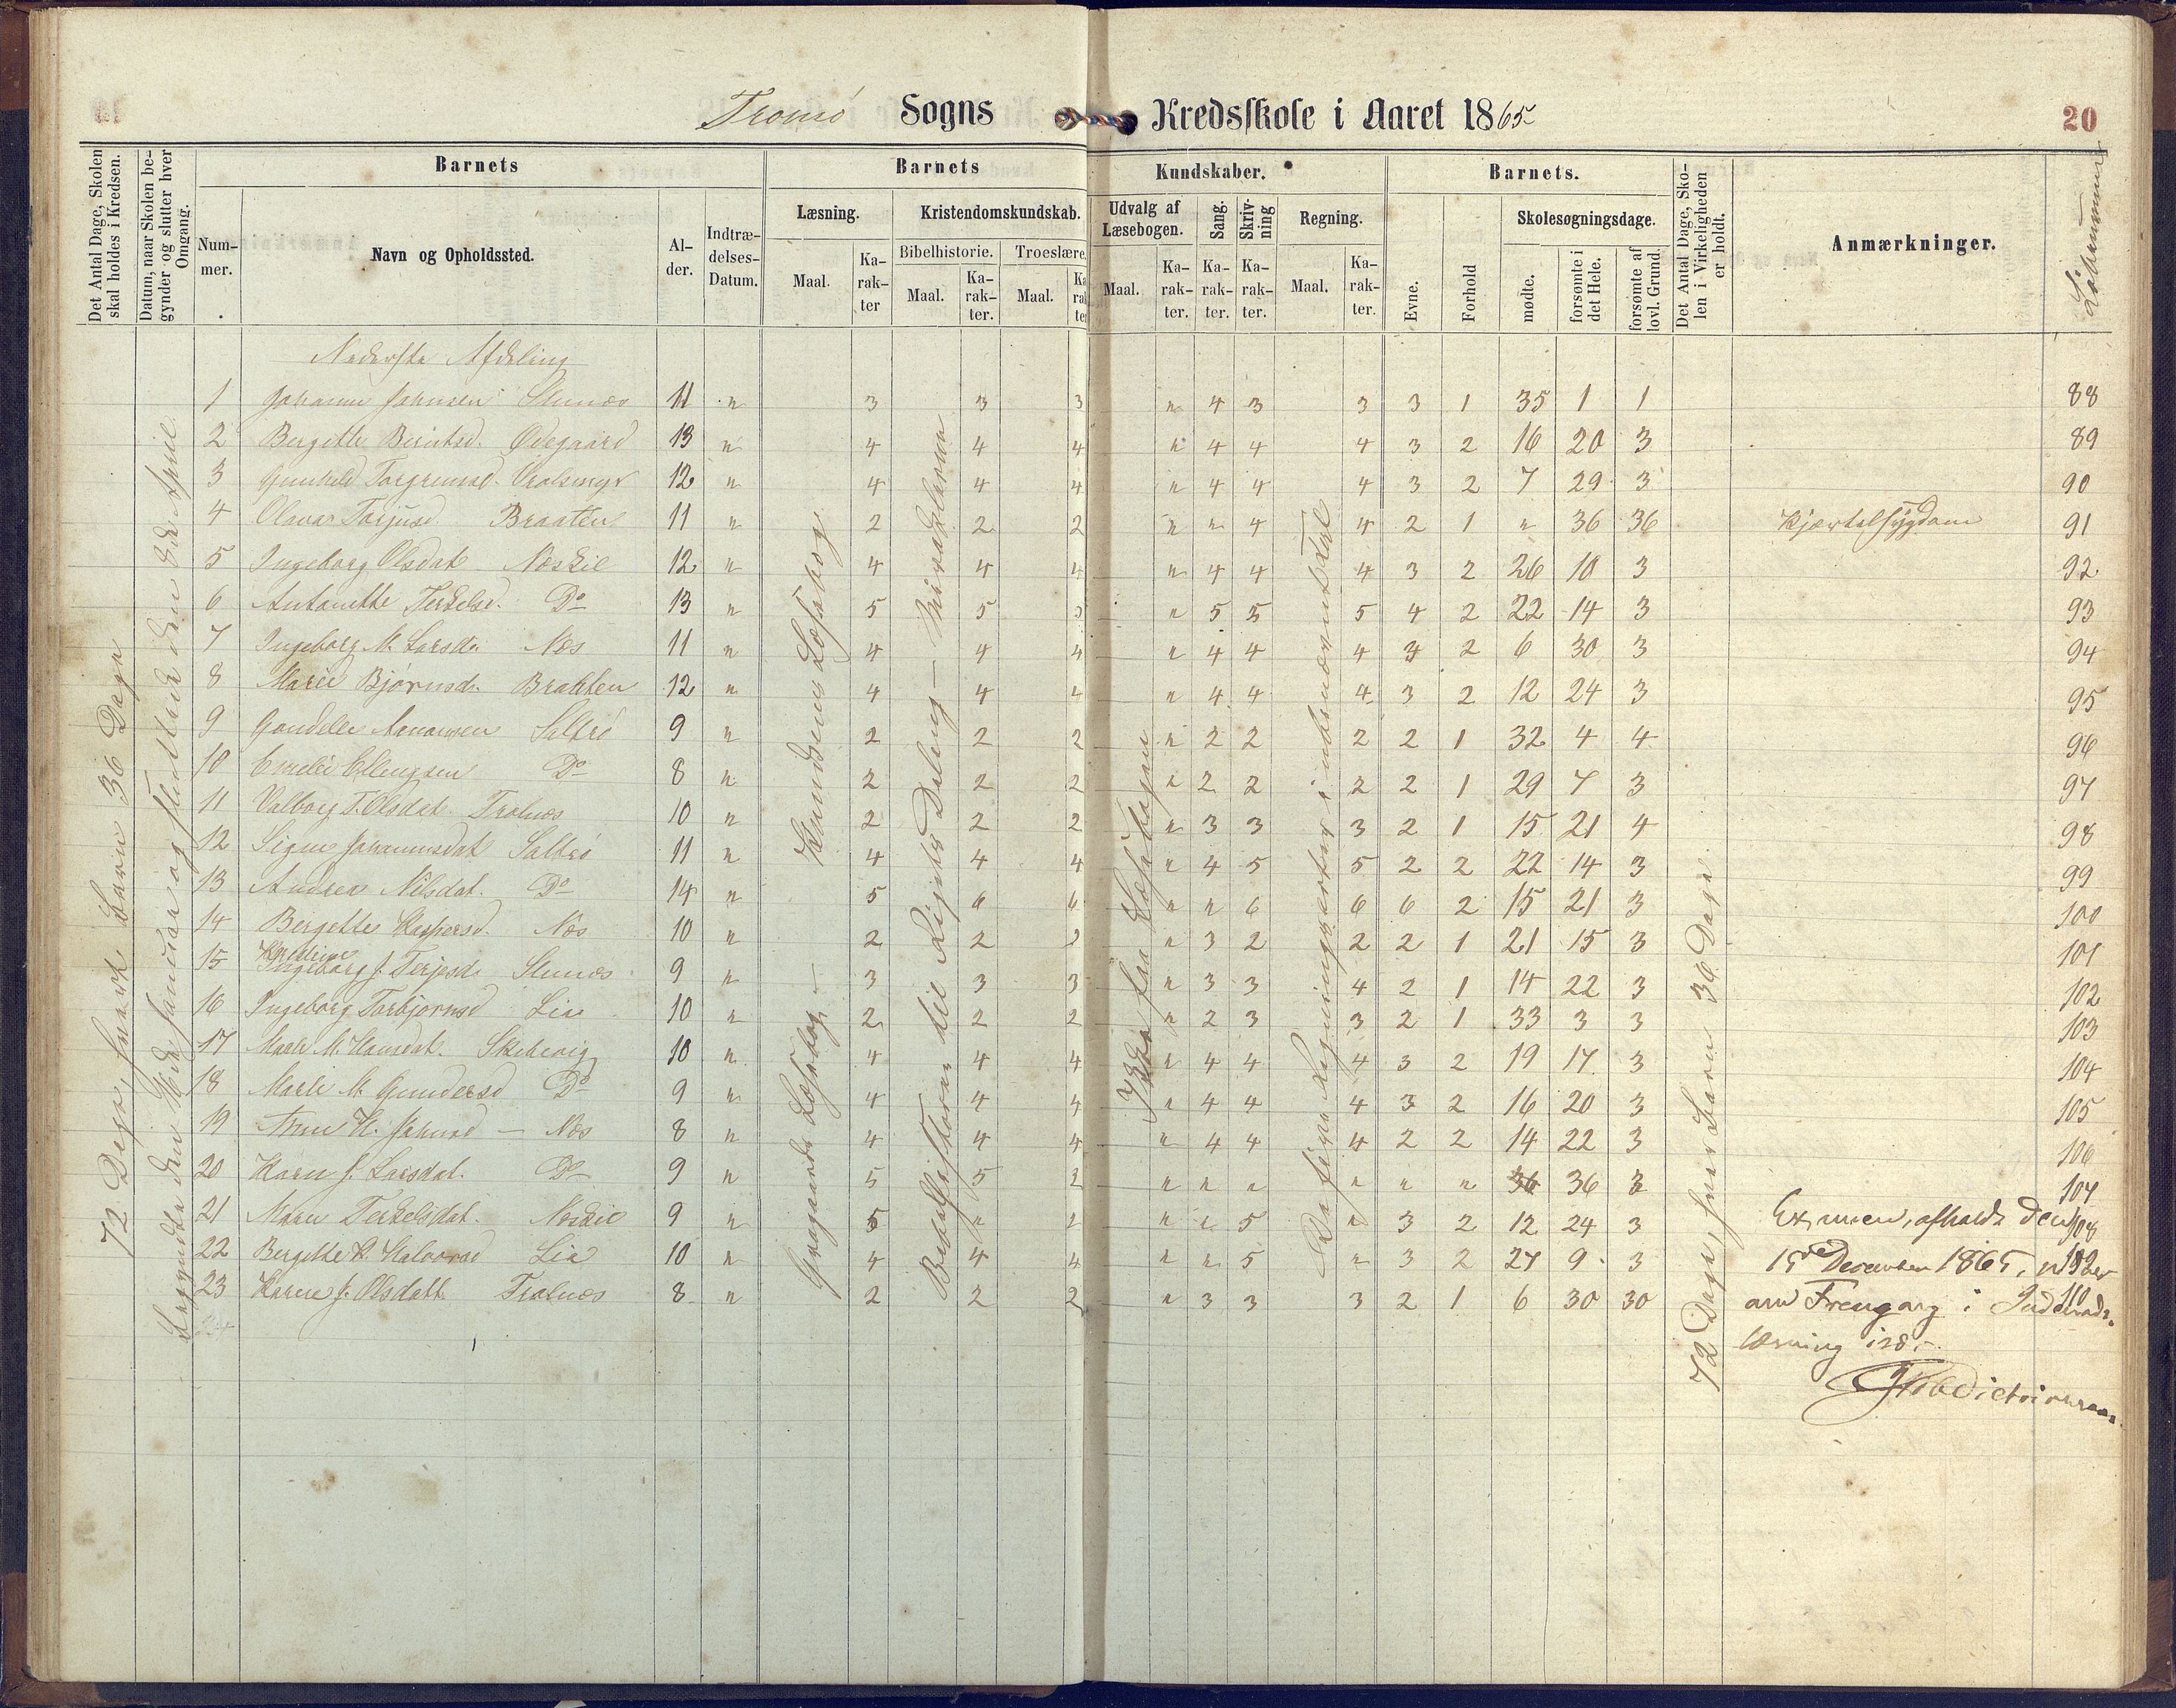 Tromö Sogns Kredsskole i Aaret 1865 20
Det Antal Dage, Skolen skal holdes i Kredsen.
Datum, naar Skolen begynder og slutter hver Omgang.
Barnets
Barnets Kundskaber.
Barnets.
Det Antal Dage, Skolen i Virkeligheden er holdt.
Anmærkninger.
Løbenummer
Nummer.
Navn og Opholdssted.
Alder.
Indtrædelses-Datum.
Læsning.
Kristendomskundskab.
Udvalg af Læsebogen.
Sang.
Skrivning
Regning.
Evne.
Forhold
Skolesøgningsdage.
Bibelhistorie.
Troeslære.
Maal. Karakter Maal. Karakter. Maal. Karakter Maal. Karakter. Karakter. Karakter. Maal. Karakter.
mødte.
forsømte i det Hele.
forsømte af lovl. Grund.
Nederste Afdeling
1 Johanne Johnsen 11 " 3 3 3 " 4 3 3 3 1 35 1 1 88
2 Bergette Berntsd. Ødegaard 13 " 4 4 4 " 4 4 4 3 2 16 20 3 89
3 Gunhild Torgrimsd. 12 " 4 4 4 " 4 4 4 3 2 7 29 3 90
4 Olava Torjusd Braaten 11 " 2 2 2 " " 4 4 2 1 " 36 36 Kjertelsygdom 91
5 Ingeborg Olsdat. Næskil 12 " 4 4 4 " 4 4 4 3 2 26 10 3 92
6 Antonette Terkelsd. Do 13 " 5 5 5 " 5 5 5 4 2 22 14 3 93
7 Ingeborg M. Larsd. Næs 11 " 4 4 4 " 4 4 4 3 2 6 30 3 94
8 Maren Bjørnsd. Braaten 12 " 4 4 4 " 4 4 4 3 2 12 24 3 95
9 Gondelle Aanonsen Saltrø 9 " 2 2 2 " 2 2 2 2 1 32 4 4 96
10 Emelie Ellingsen Do 8 " 2 2 2 " 2 2 2 2 1 29 7 3 97
11 Valborg T. Olsdat. Tralnæs 10 " 2 2 2 " 3 3 3 2 1 15 21 4 98
12 Signe Johannesdat Saltrø 11 " 4 4 4 " 4 5 5 2 2 22 14 3 99
13 Andrea Nilsdat. Do 14 " 5 6 6 " " 6 6 6 2 15 21 3 100
14 Bergette Kaspersd. Næs 10 " 2 2 2 " 3 2 2 2 1 21 15 3 101
15 Ingeborg J. Terjesd. 9 " 3 3 3 " 3 3 4 2 1 14 22 3 102
16 Ingeborg Torbjørnsd Lia 10 " 2 2 2 " 2 3 3 2 1 33 3 3 103
17 Maren M. Hansdat. Skibevig 10 " 4 4 4 " 4 4 4 3 2 19 17 3 104
18 Maren M. Gundersd Do 9 " 4 4 4 " 4 4 4 3 2 16 20 3 105
19 Anne H. Johnsd — Næs 8 " 4 4 4 " 4 4 4 2 2 14 22 3 106
20 Karen J. Larsdat. Do 9 " 5 5 " " " " " " 36 36 3 107
21 Maren Terkelsdat. Næskil 9 " 5 " " " 5 " 3 2 12 24 3 108
22 Bergette K. Halvorsd Lia 10 " 4 4 4 " " 5 " 3 2 27 9 3 109
23 Karen J. Olsdatt. Tralnæs 8 " 2 2 2 " 3 3 3 2 1 6 30 30 110
72 Dage, hvert Barn 36 Dage
Begyndte den Januar og sluttede den April
Gragaards Læsebog — Knudsens Læsebog
Bibelhistorien til Rigets Deling — Miraklerne
Ikke fra Læsebogen
De fire Regningsarter i ubenævnte Tal
72 Dage, hver Barn 36 Dage
Examen, afholdt den
15de December 1865,
Fremgang i
læsning